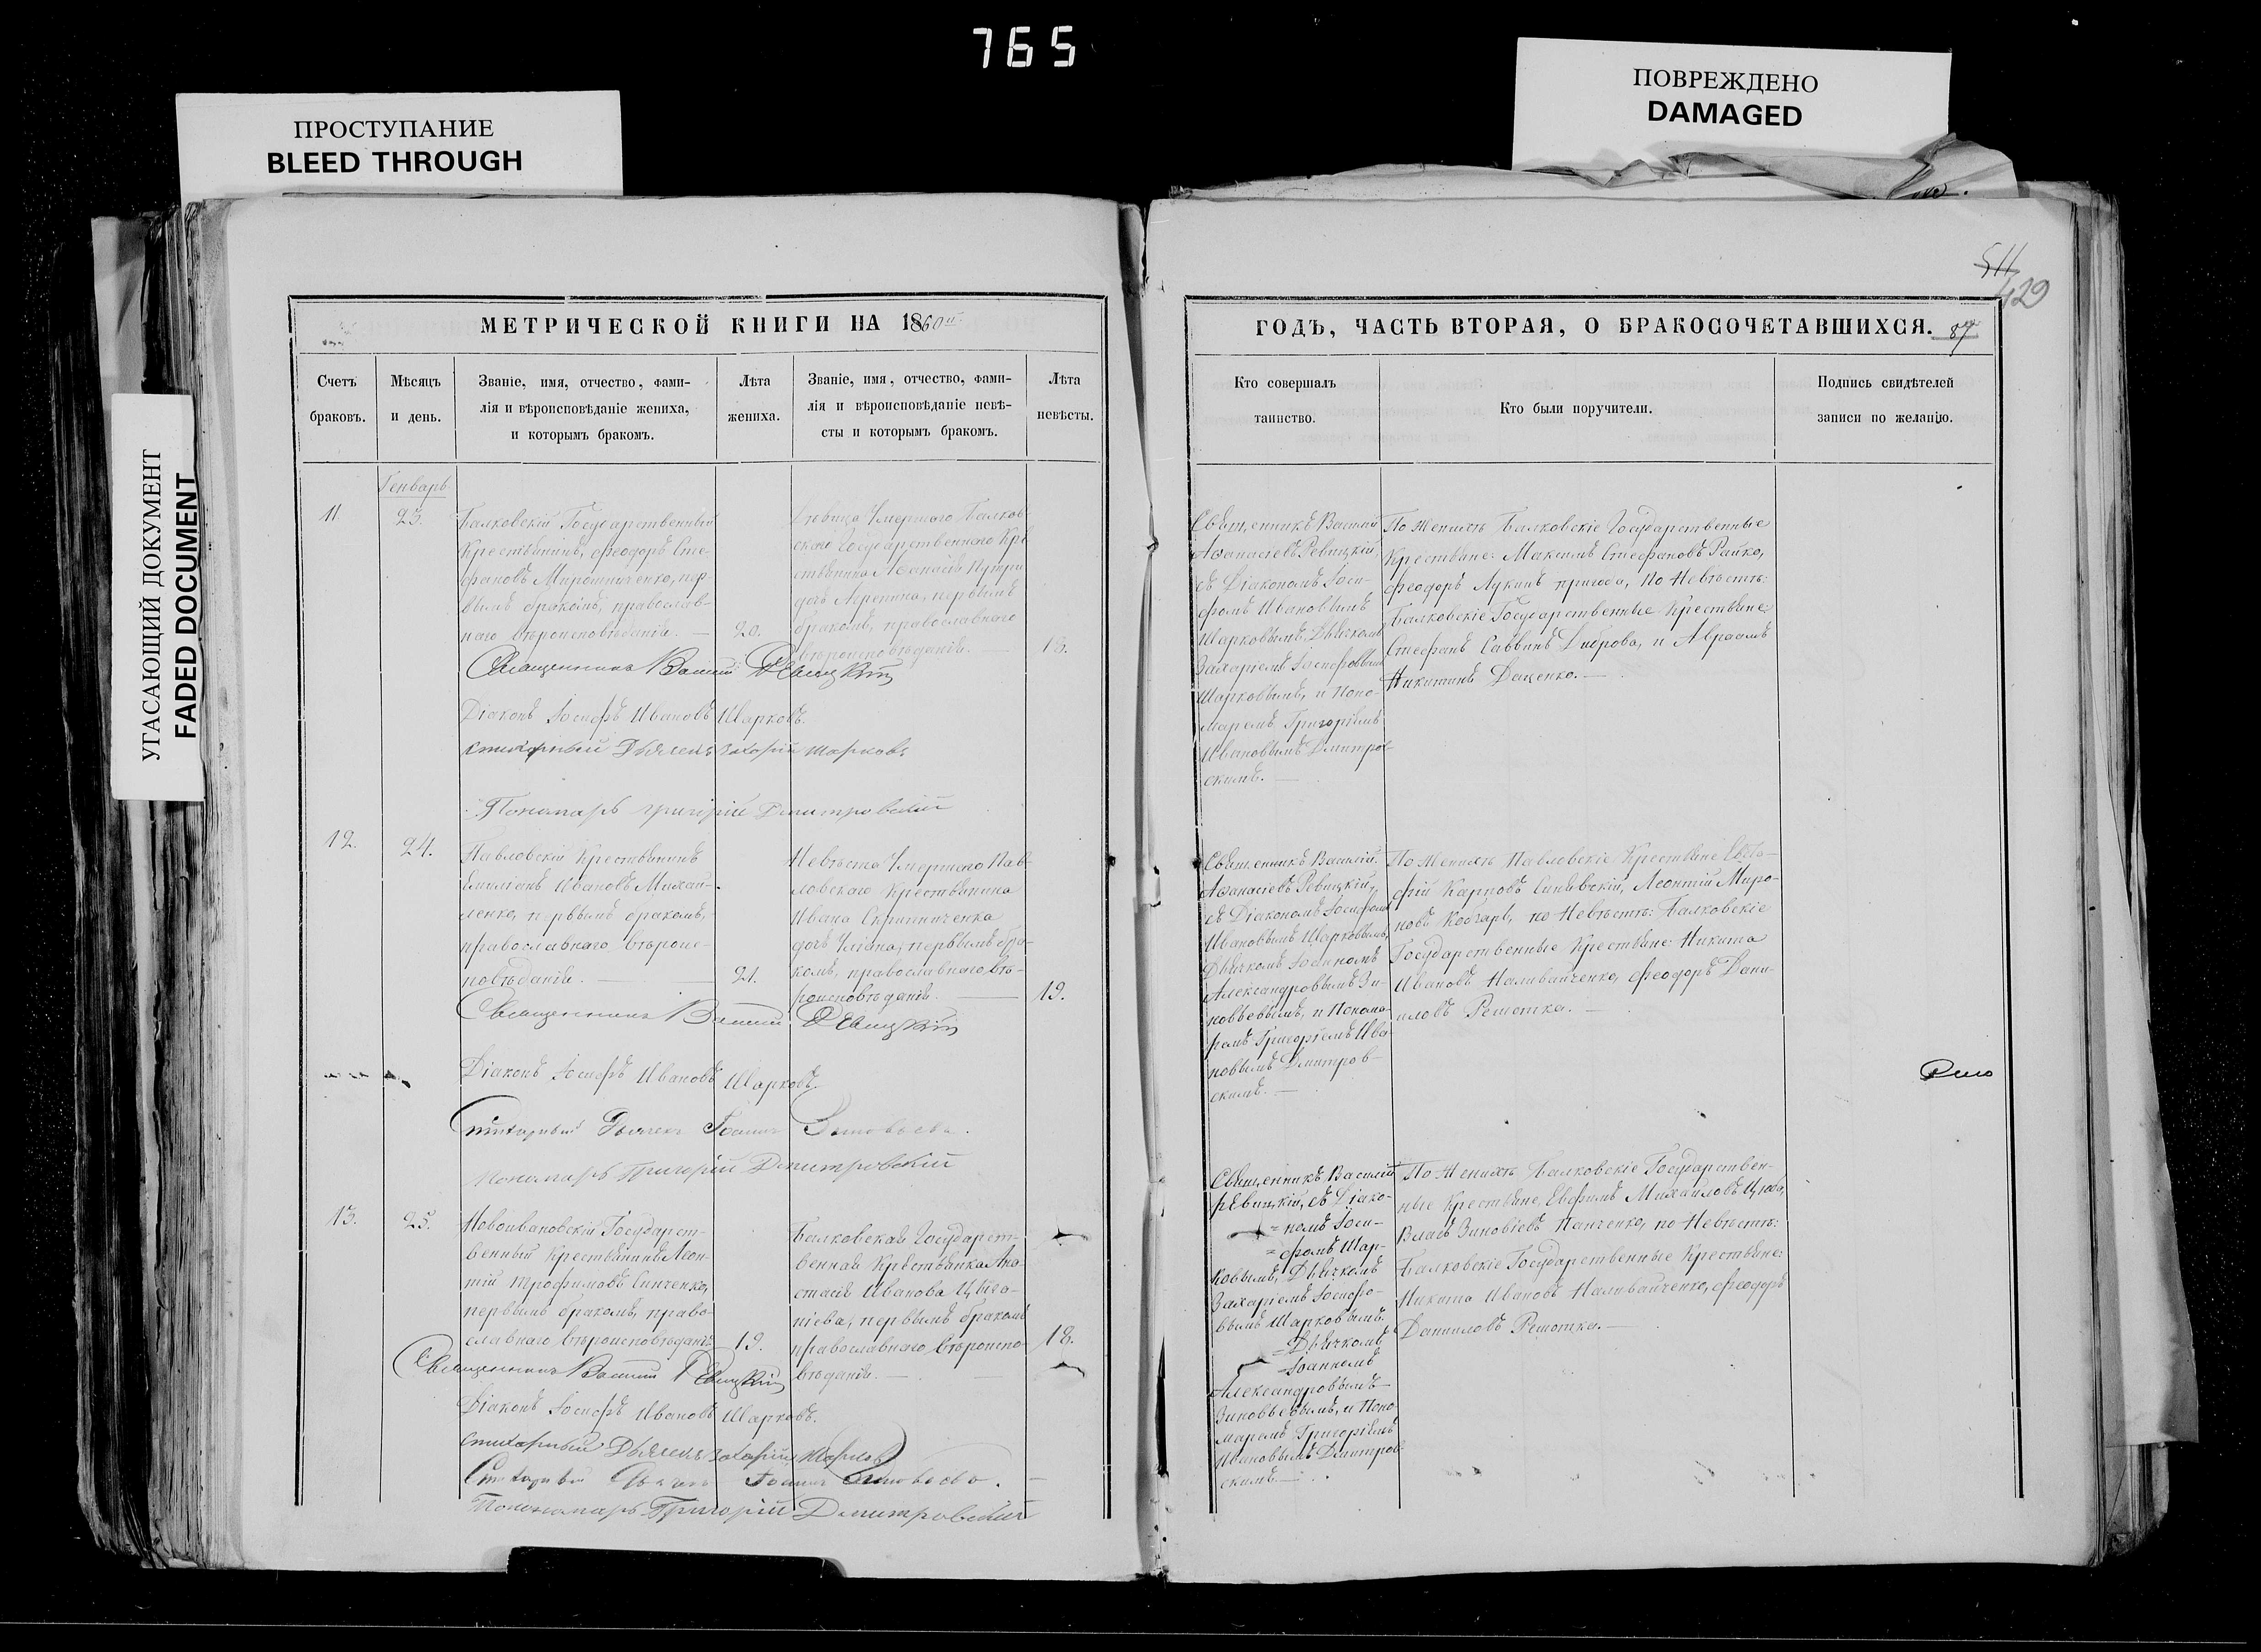 765
ПРОСТУПАНИЕ
BLEED THROUGH
ПОВРЕЖДЕНО
DAMAGED
УГАСАЮЩИЙ ДОКУМЕНТ
FADED DOCUMENT
МЕТРИЧЕСКОЙ КНИГИ НА 1860
Счетъ
браковъ.
Мѣсяцъ
и день.
Званіе, имя, отчество, фами-
лія и вѣроисповѣданіе жениха,
и которымъ бракомъ.
Лѣта
жениха.
Званіе, имя, отчество, фами-
лія и вѣроисповѣданіе невѣ-
сты и которымъ бракомъ.
Лѣта
невѣсты.
Генварь
11.
23.
Балковскій Государственный
Крестьянинъ, Феодоръ Сте-
фановъ Мирошниченко, пер-
вымъ бракомъ, православ-
наго вѣроисповѣданія.
20.
умершаго Балков
скаго Государственнаго Кре
стьянина Афанасія
дочь первымъ
бракомъ, православнаго
вѣроисповѣданія.
18.
Священникъ Василій Ревицкій
Діаконъ Іосифъ Ивановъ Шарковъ.
стихарный Дьячекъ Захарій Шарковъ
Пономарь Григорій Дмитровскій
12.
24.
Павловскій Крестьянинъ
Емиліанъ Ивановъ Михай-
ленко, первымъ бракомъ,
православнаго вѣроис-
повѣданія.
21.
Невѣста Умершаго Пав-
ловскаго Крестьянина
Ивана Скрипниченка
дочь Уліана, первымъ бра-
комъ, православнаго вѣ-
роисповѣданія.
19.
Священникъ Василій Ревицкій
Діаконъ Іосифъ Ивановъ Шарковъ.
Стихарный Дьячекъ Іоаннъ Зиновьевъ.
Пономарь Григорій Дмитровскій
13.
25.
Новоивановскій Государст-
венный Крестьянинъ Леон-
тій Трофимовъ Синченко,
первымъ бракомъ, право-
славнаго вѣроисповѣданія
19.
Балковская Государст-
венная Крестьянка Ана-
стасія Иванова
первымъ бракомъ
православнаго вѣроиспо-
вѣданія.
18.
Священникъ Василій Ревицкій
Діаконъ Іосифъ Ивановъ Шарковъ.
стихарный Дьячекъ Захарій Шарковъ
Стихарный Дьячекъ Іоаннъ Зиновьевъ.
Пономарь Григорій Дмитровскій
511
429
ГОДЪ, ЧАСТЬ ВТОРАЯ, О БРАКОСОЧЕТАВШИХСЯ. 87
Кто совершалъ
таинство.
Кто были поручители.
Подпись свидѣтелей
записи по желанію.
Священникъ Василій
Афанасіевъ Ревицкій,
съ Діакономъ Іоси-
фомъ Ивановымъ
Шарковымъ, Дьячкомъ
Захаріемъ Іосифовымъ
Шарковымъ, и Поно-
маремъ Григоріемъ
Ивановымъ Дмитров-
скимъ.
По Женихѣ Балковскіе Государственные
Крестьяне: Максимъ Стефановъ Райко,
Феодоръ Лукинъ Пригода, по Невѣстѣ:
Балковскіе Государственные Крестьяне:
Стефанъ Саввинъ Диброва, и Авраамъ
Никитинъ Даценко.
Священникъ Василій
Афанасіевъ Ревицкій,
съ Діакономъ Іосифомъ
Ивановымъ Шарковымъ,
Дьячкомъ Іоанномъ
Александровымъ Зи-
новьевымъ, и Понома-
ремъ Григоріемъ Ива-
новымъ Дмитров-
скимъ.
По Женихѣ Павловскіе Крестьяне Евста-
фій Карповъ Синявскій, Леонтій Миро-
новъ Кобзарь, по Невѣстѣ: Балковскіе
Государственные Крестьяне: Никита
Ивановъ Наливайченко, Феодоръ Дани-
иловъ Решотка.
Священникъ Василій
Ревицкій, съ Діако-
номъ Іоси-
фомъ Шар-
ковымъ, Дьячкомъ
Захаріемъ Іосифо-
вымъ Шарковымъ.
Дьячкомъ
Іоанномъ
Александровымъ
Зиновьевымъ, и Поно-
маремъ Григоріемъ
Ивановымъ Дмитров-
скимъ.
По Женихѣ Балковскіе Государствен-
ные Крестьяне, Евфимъ Михайловъ
Власъ Зиновіевъ Панченко, по Невѣстѣ:
Балковскіе Государственные Крестьяне:
Никита Ивановъ Наливайченко, Феодоръ
Данииловъ Решотка.